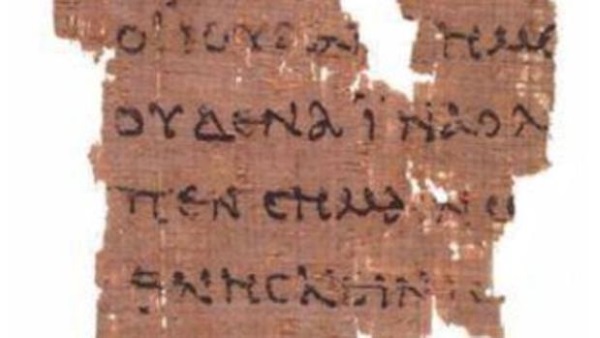 ΟΙΙΟΥΔΑΙ ΗΜΕ
ΟΥΔΕΝΑΪΝΑΟΛ
ΠΕΝCΗΜΑΙΝΩ
ΘΝΗCΚΕΙΝΙC